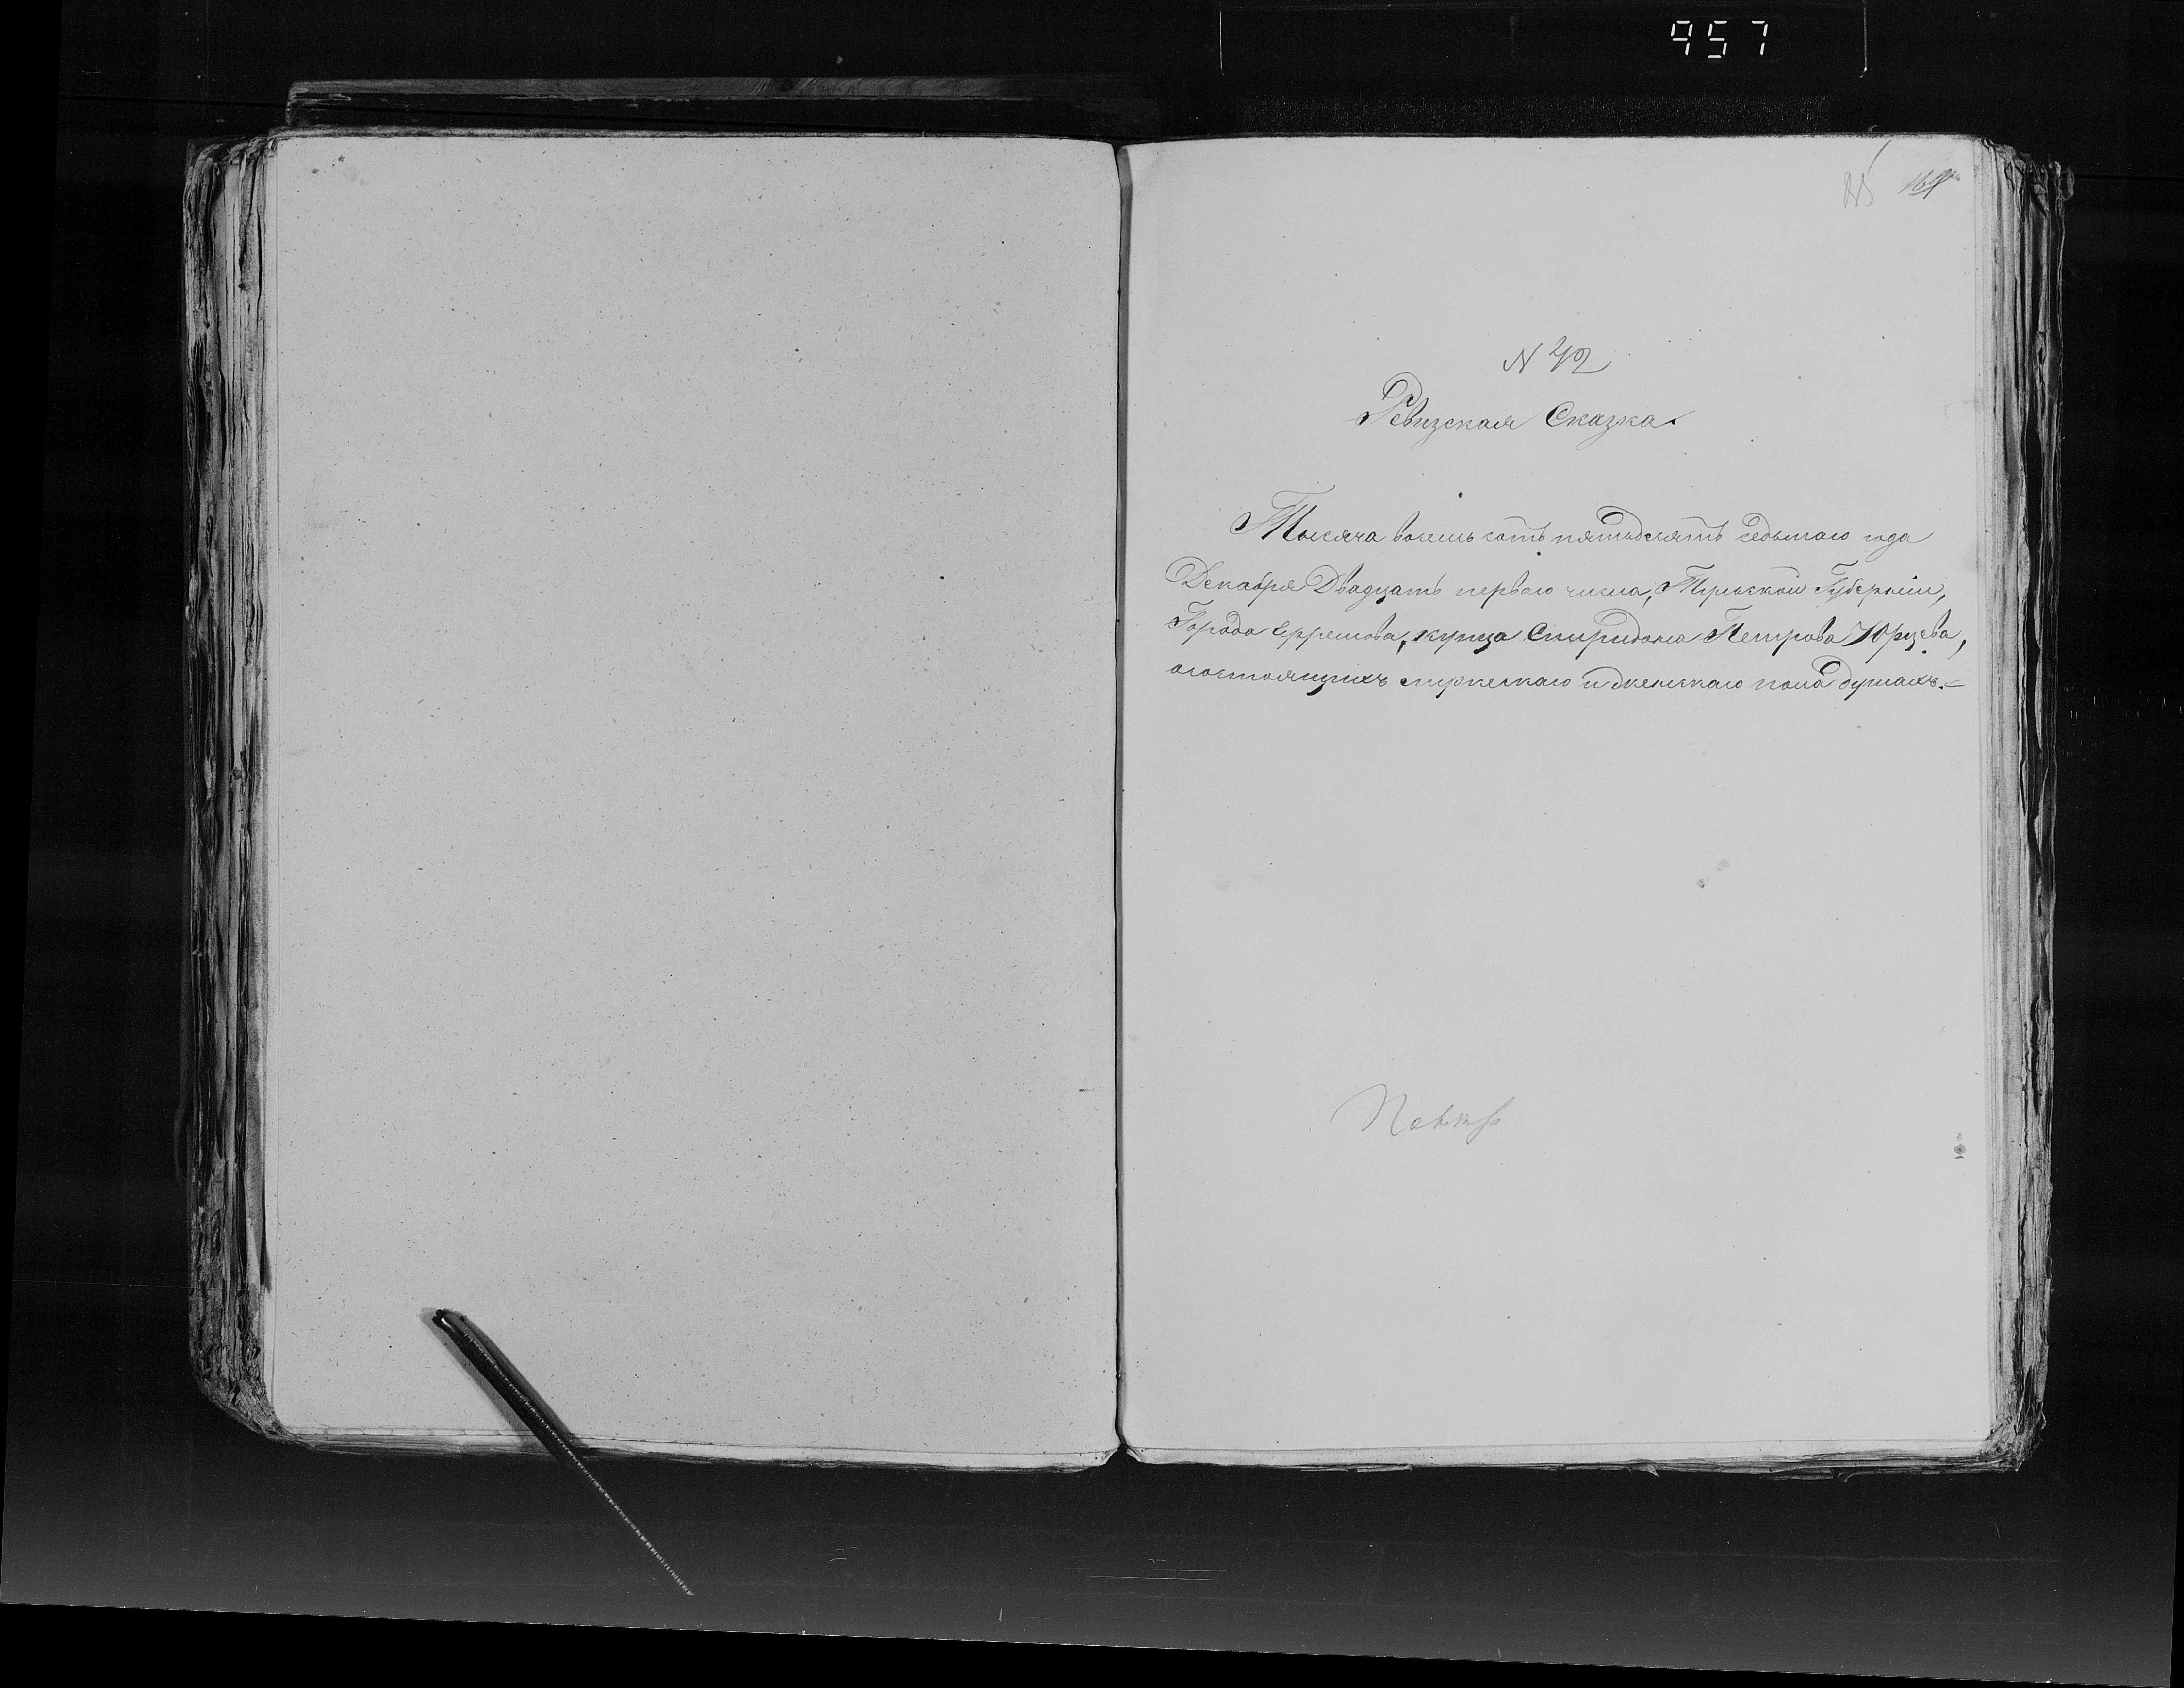 957
N 42
Ревизская Сказка.
Тысяча восемь сотъ пятьдесятъ седьмаго года
Декабря Двадцать перваго числа, Тульской Губерніи,
Города Ефремова, купца Спиридона Петрова Юрцева,
о состоящихъ мужескаго и женскаго пола душахъ.